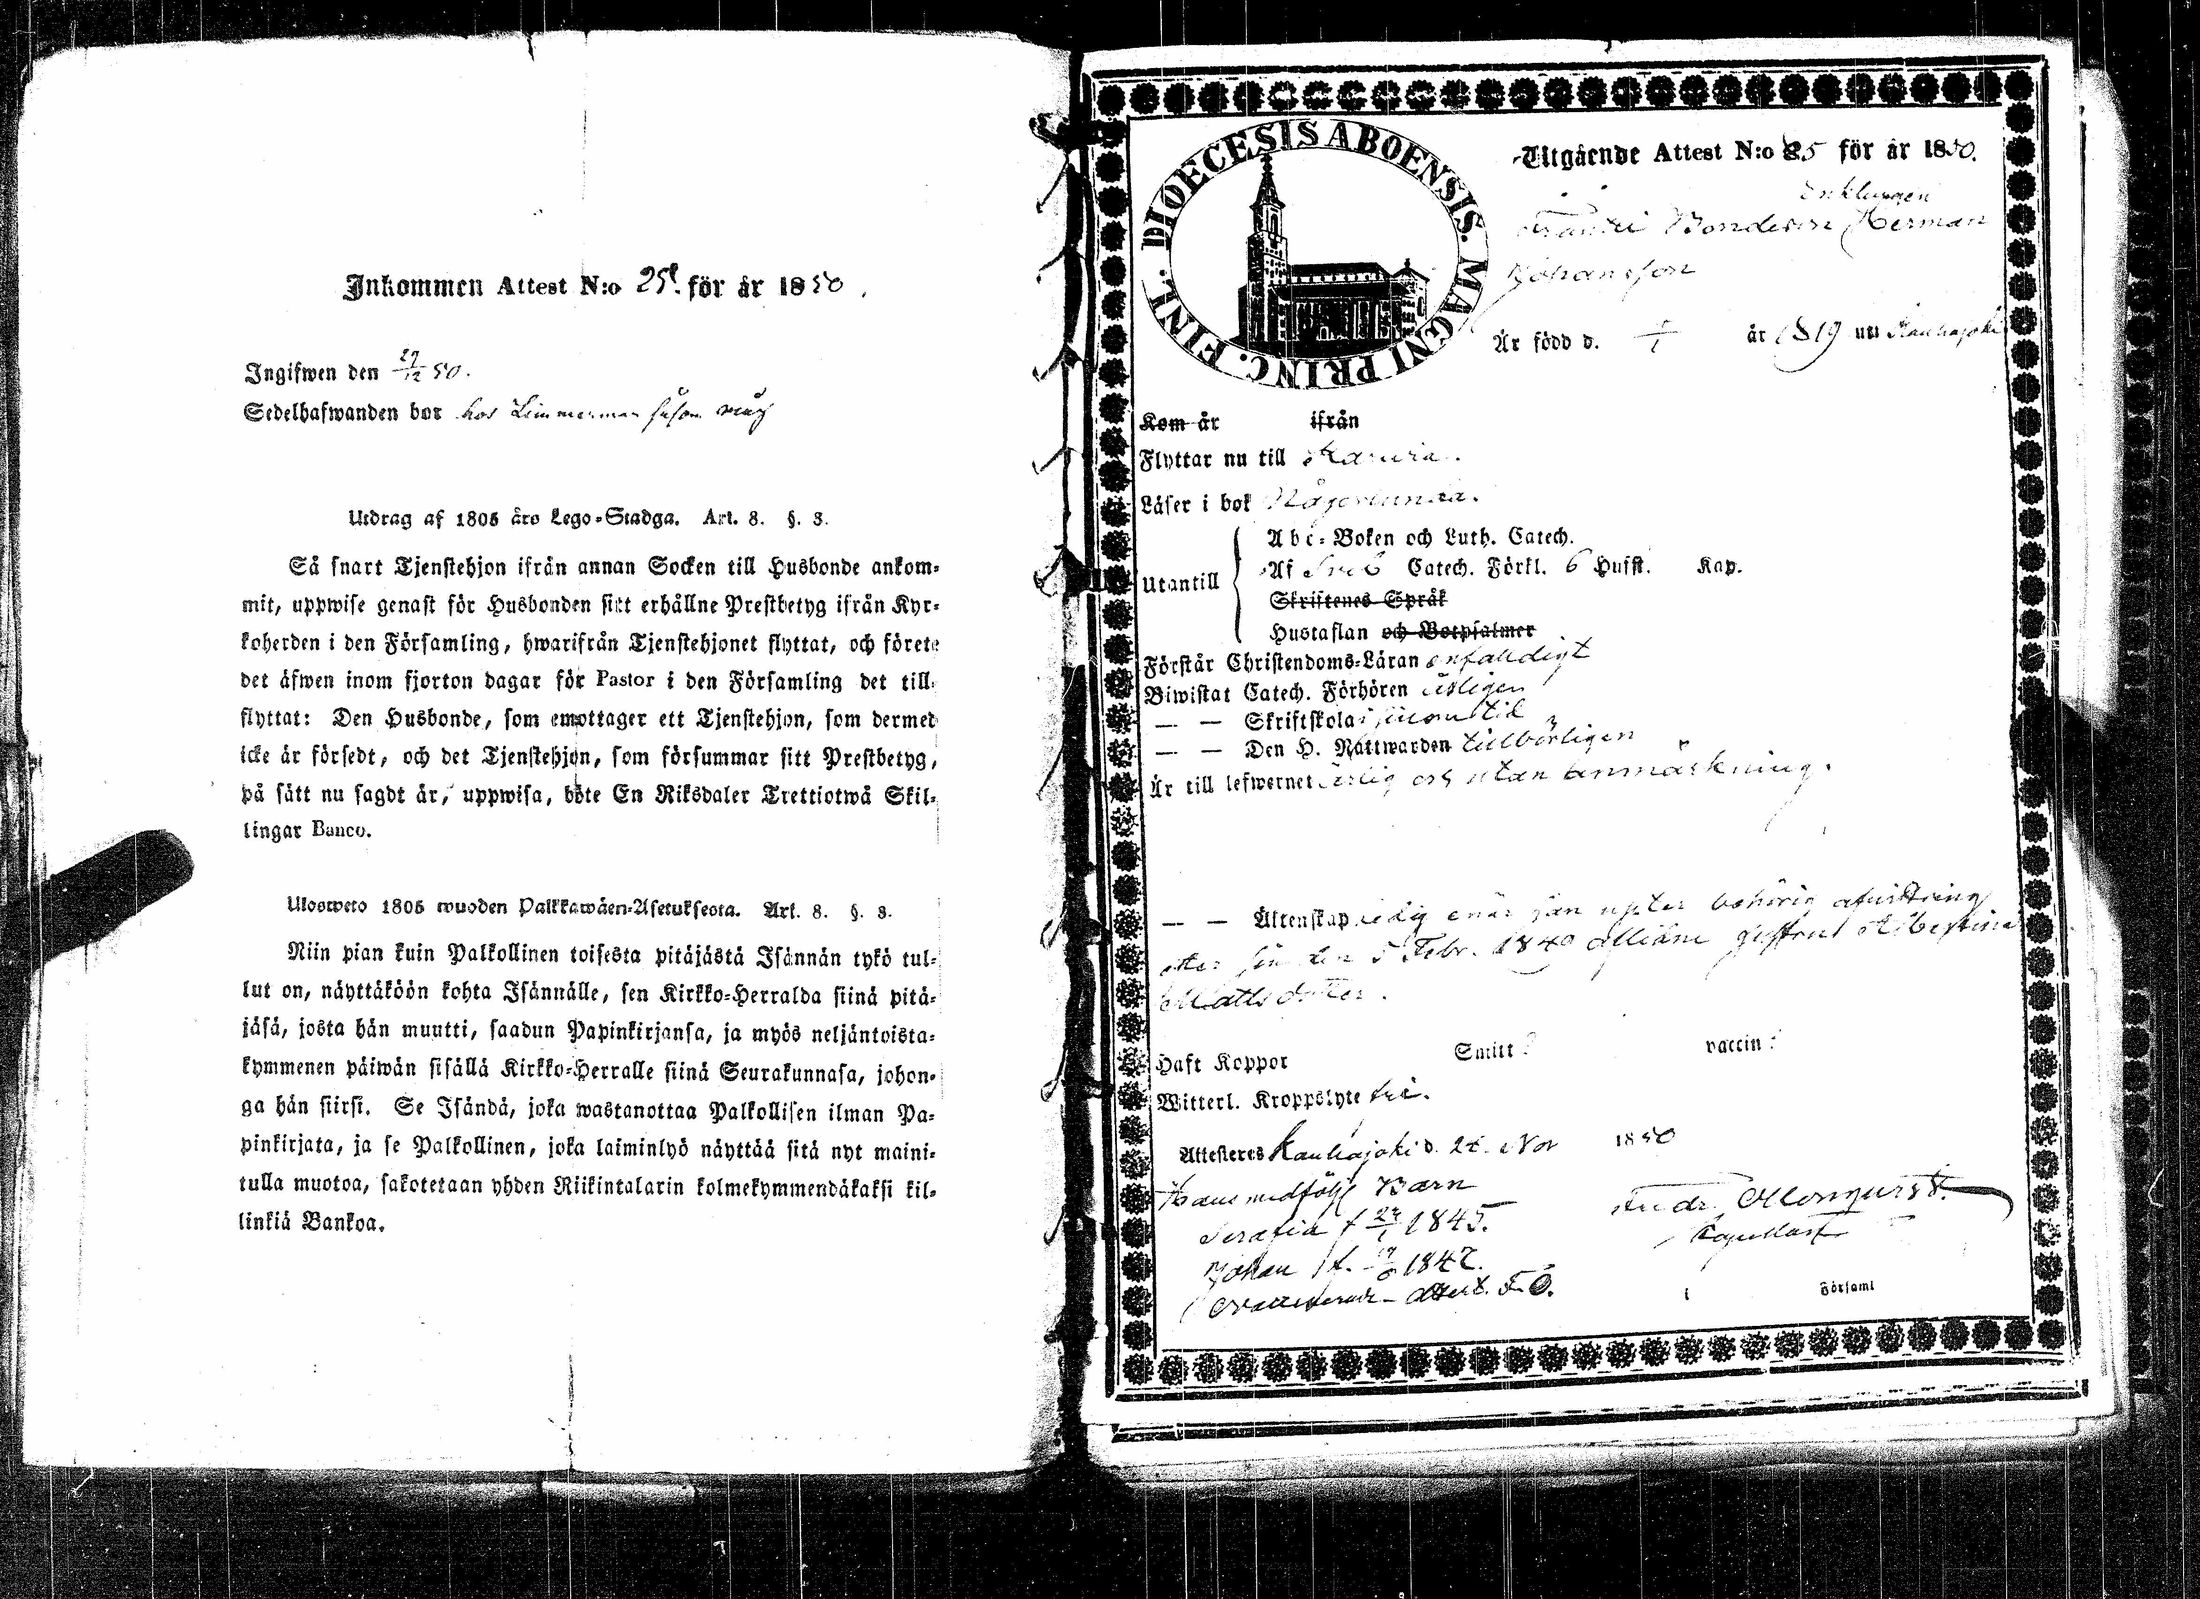 Inkommen Attest N:o 25 för år 1850.
Ingifwen den 29/12 50.
Sedelhafwanden bor hos
Utdrag af 1805 åro Lego-Stadga. Art. 8. §. 3.
Så snart Tjenstehjon ifrån annan Socken till Husbonde ankom-
mit, uppwise genast för Husbonden sitt erhållne Prestbetyg ifrån Kyr-
koherden i den Församling, hwarifrån Tjenstehjonet flyttat, och förete
det äfwen inom fjorton dagar för Pastor i den Församling det till-
flyttat: Den Husbonde, som emottager ett Tjenstehjon, som dermed
icke är försedt, och det Tjenstehjon, som försummar sitt Prestbetyg,
på sätt nu sagdt är, uppwisa, böte En Riksdaler Trettiotwå Skil-
lingar Banco.
Ulosweto 1805 wuoden Palkkawäen-Asetuksesta. Art. 8. §. 3.
Niin pian kuin Palkollinen toisesta pitäjästä Isännän tykö tul-
lut on, näyttäköön kohta Isännälle, sen Kirkko-Herralda siinä pitä-
jäsä, josta hän muutti, saadun Papinkirjansa, ja myös neljäntoista-
kymmenen päiwän sisällä Kirkko-Herralle siinä Seurakunnasa, johon-
ga hän siirsi. Se Isändä, joka wastanottaa Palkollisen ilman Pa-
pinkirjata, ja se Palkollinen, joka laiminlyö näyttää sitä nyt maini-
tulla muotoa, sakotetaan yhden Riikintalarin kolmekymmendäkaksi kil-
linkiä Bankoa.
DIOECESIS ABOENSIS. MAGNI PRINC. FINL.
Utgående Attest N:o 85 för år 1850.
Enklingen
Bondeson Herman
Johansson
Är född d. år 1819 uti Kauhajoki
Kom år ifrån
Flyttar nu till Karvia.
Läser i bok Någorlunda.
Utantill
Abc-Boken och Luth. Catech.
Af Sveb Catech. Förkl. 6 Hufst. Kap.
Skriftenes Språk
Hustaflan och Botpsalmer
Förstår Christendoms-Läran enfaldigt
Biwistat Catech. Förhören årligen
— — Skriftskola i sinom tid
— — Den H. Nattwarden tillbörligen
Är till lefwernet ärlig och utan anmärkning.
— — Äktenskap ledig enär han njuter behörig afvittring
efter sin den 5 Febr. 1840 aflidne hustru Albertina
Mattsdotter.
Haft Koppor Smitt vaccin:
Witterl. Kroppslyte fri.
Attesteres Kauhajoki d. Nov 1850
Hans medfölje Barn
Serafia f 1845.
Johan f. 1847.
Kapellan
Församl